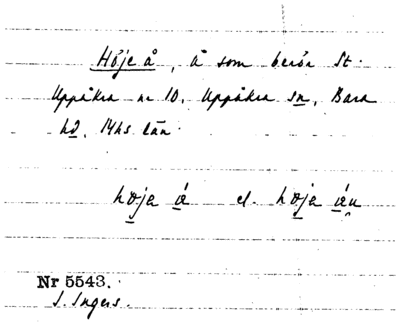 Höje å, å som berör St.
Uppåkra nr 10, Uppåkra sn, Bara
hd, Mhs län.
höja å el. höja åu
Nr 5543.
I. Ingers.